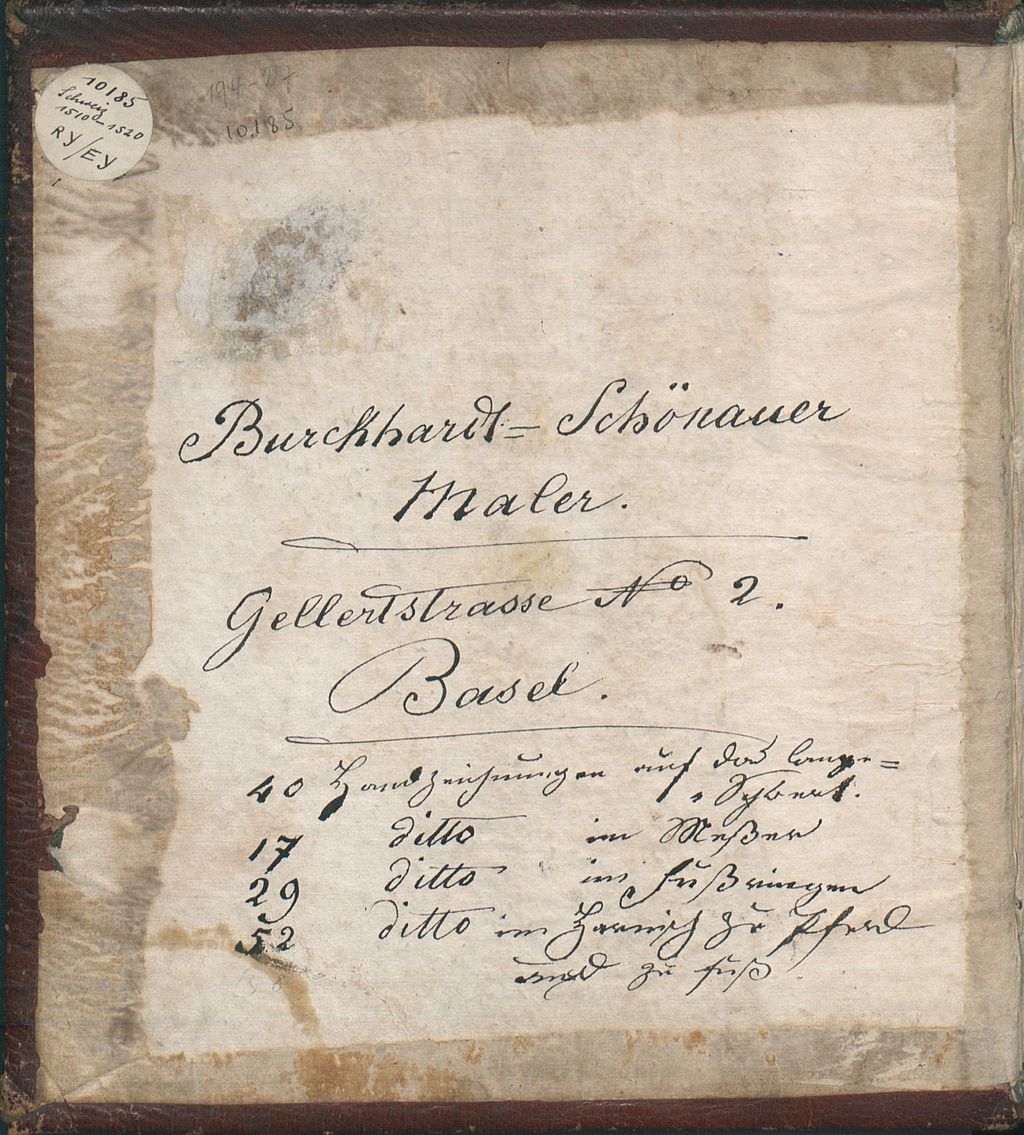 10185
Schweiz
1510-1520
RY/EY
10185
Burckhardt= Schönauer
Maler.
Gellertstrasse No 2.
Basel.
40 Handzeichnungen auf das lange=
Schwert.
17 ditto im Meßer
29 ditto im Fußringen
52 ditto im Harnisch zu Pferd
und zu Fuß